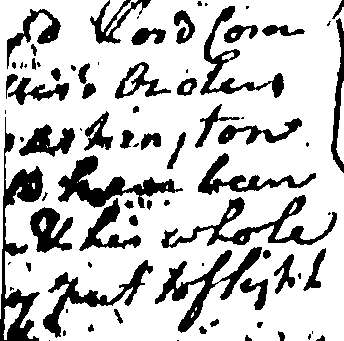 Lord Corn
wallis's orders
ashington
have been
his whole
put to flight